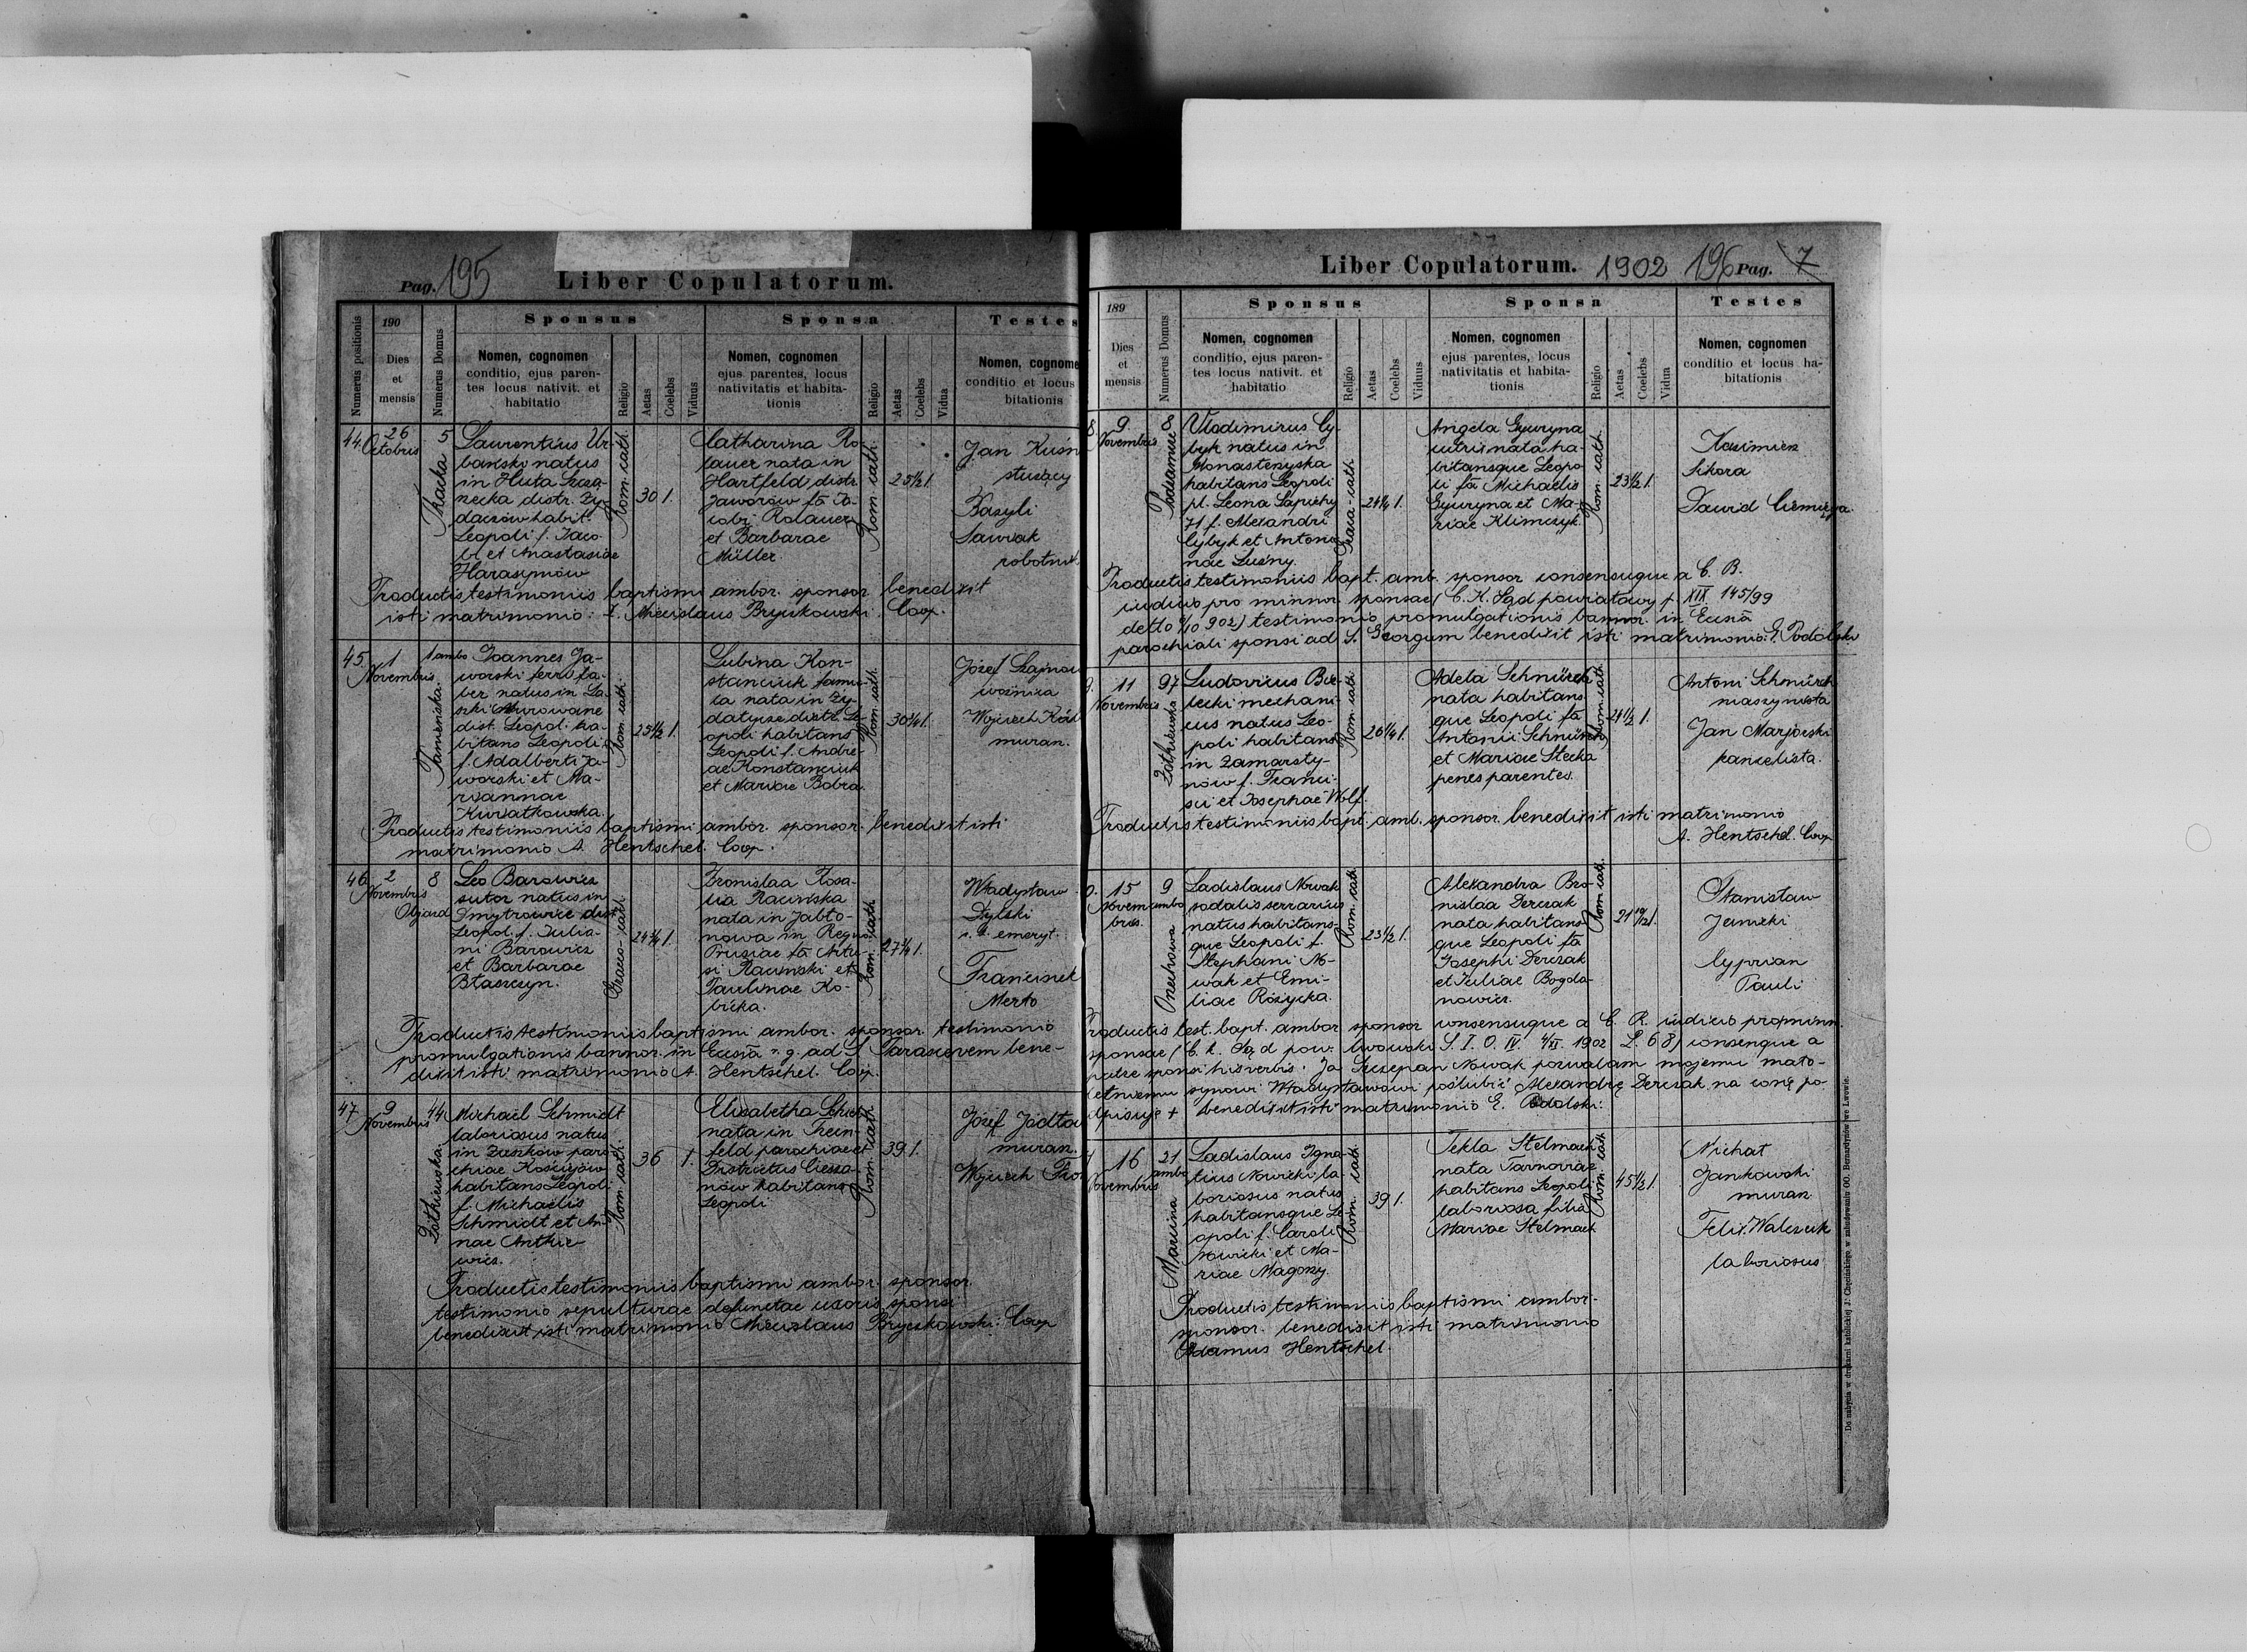 Pag. 195 Liber Copulatorum.
Numerus positionis
190
Dies
et
mensis
Numerus Domus
Sponsus
Nomen, cognomen
conditio, ejus paren-
tes locus nativit. et
habitatio
Religio
Aetas
Coelebs
Viduus
Sponsa
Nomen, cognomen
ejus parentes, locus
nativitatis et habita-
tionis
Religio
Aetas
Coelebs
Vidua
Testes
Nomen, cognome
conditio et locus
bitationis
44.
26
Octobris
5
Laurentius Ur-
bański natus
in Huta Szcza-
necka distr. Ży-
daczów habit.
Leopoli f. Jaco-
bi et Anastasiae
Harasymów
Rom. cath.
30 1.
Catharina Ro-
lauer nata in
Hartfeld distr.
Jaworów fa Ja-
cobi Rolauer
et Barbarae
Müller
Rom. cath.
25 1/2 1.
Jan Kuśn
służący
Bazyli
Sawiak
robotnik
Productis testimoniis baptismi ambor. sponsor. benedixit
isti matrimonio: X. Miecislaus Bryczkowski. Coop.
45.
1
Novembris
1 ambo
Joannes Ja-
worski ferro fa-
ber natus in La-
szki Murowane
dist. Leopol. ha-
bitans Leopoli
f. Adalberti Ja-
worski et Ma-
riannae
Kwiatkowska.
Rom. cath.
25 1/2 1.
Lubina Kon-
stanciuk famu-
la nata in Ży-
datycze distr. Le-
opoli habitans
Leopoli f. Andre-
ae Konstanciuk
et Mariae Bobra.
Rom. cath.
30 1/4 1.
Józef Szajno
woźnica
Wojciech
muran.
Productis testimoniis baptismi ambor. sponsor. benedixit isti
matrimonio A. Hentschel. Coop.
46
2
Novembris
8
Leo Barowicz
sutor natus in
Dmytrowice dist.
Leopol. f. Julia-
ni Barowicz
et Barbarae
Błaszczyn.
Graeco-cath.
24 3/4 1.
Bronislaa Rosa-
lia Racińska
nata in Jabło-
nowa in Regno
Prusiae fa Artu-
si Raciński et
Paulinae Ko-
bicka.
Rom. cath.
27 3/4 1.
Władysław
Dylski
emeryt.
Franciszek
Merto
Productis testimoniis baptismi ambor. sponsor. testimonio
promulgationis bannor. in Eccsia r. g. ad S. Parascevem bene-
dixit isti matrimonio A. Hentschel. Coop.
47
9
Novembris
44
Żółkiewska.
Michael Schmidt
laboriosus natus
in Zuszków paro
chiae Kościejów
habitans Leopoli
f. Michaelis
Schmidt et An-
nae Anthie
wicz.
Rom. cath.
36 1.
Elisabetha
nata in Frein-
feld parochiae et
Districtus Ciesza-
nów habitans
Leopoli
Rom. cath.
39 1.
Józef Jodło
muran.
Wojciech
Productis testimoniis baptismi ambor. sponsor.
testimonio sepulturae defunctae uxoris sponsi
benedixit isti matrimonio Miecislaus Bryczkowski. Coop
Liber Copulatorum. 1902 196 Pag. 7
189
Dies
et
mensis
Numerus Domus
Sponsus
Nomen, cognomen
conditio, ejus paren-
tes locus nativit. et
habitatio
Religio
Aetas
Coelebs
Viduus
Sponsa
Nomen, cognomen
ejus parentes, locus
nativitatis et habita-
tionis
Religio
Aetas
Coelebs
Vidua
Testes
Nomen, cognomen
conditio et locus ha-
bitationis
8.
9.
Novembris
8
Podzamcze
Vlodimirus Cy-
byk natus in
Monasterzyska
habitans Leopoli
pl. Leona Sapiehy
71 f. Alexandri
Cybyk et Anto
nae Luśny.
Graeco-cath.
24 1/4 1.
Angela Gyuryna
nutrii nata ha-
bitansque Leopo
li fa Michaelis
Gyuryna et Ma-
riae Klimczyk.
Rom. cath.
23 1/2 1.
Kazimierz
Sikora
Dawid
Productis testimoniis bapt. amb. sponsor consensuque a C. R.
iudicio pro minor. sponsae (C. K. Sąd powiatowy f. XIX 145/99
detto 1/10 902) testimonio promulgationis bannor. in Eccsia
parochiali sponsi ad S. Georgum benedixit isti matrimonio: E. Podolski
9.
11
Novembris
97
Żółkiewska
Ludovicus Bie-
lecki mechani-
cus natus Leo-
poli habitans
in Zamarsty-
nów f. Franci-
sci et Josephae Wolf.
Rom. cath.
26 1/4 1.
Adela Schnürch
nata habitans
que Leopoli fa
Antonii Schnürch
et Mariae Stecka
penes parentes.
Rom. cath.
24 1/2 1.
Antoni Schnürch
maszynista
Jan Marjoński
kancelista.
Productis testimoniis bapt. amb. sponsor. benedixit isti matrimonio
A. Hentschel. Coop
0.
15
Novem-
bris.
9
ambo
Orzechowa
Ladislaus Nowak
sodalis serrarius
natus habitans-
que Leopoli f.
Stephani No-
wak et Emi-
liae Różycka.
Rom. cath.
23 1/2 1.
Alexandra Bro-
nislaa Derczak
nata habitans-
que Leopoli fa
Josephi Derczak
et Juliae Bogda-
nowicz.
Rom. cat.
21 10/12 1.
Stanisław
Janicki
Cyprian
Pauli
Productis test. bapt. ambor sponsor consensuque a C. R. iudicio pro minn.
sponsae (C. k. Sąd pow. lwowski S. I. O. IV 4/XI 1902 L. 68) consensque a
patre sponsi his verbis: Ja Szczepan Nowak pozwalam mojemu mało-
letniemu synowi Władysławowi poślubić Alexandrę Derczak na żonę po-
dpisuję + benedixit isti matrimonio E. Podolski.
16
Novembris
21
ambo
Marcina
Ladislaus Igna
tius Nowicki la
boriosus natus
habitansque Le-
opoli f. Caroli
Nowicki et Ma-
riae Magoszy.
Rom. cath.
39 1.
Tekla Stelmach
nata Tarnoviae
habitans Leopoli
laboriosa filia
Mariae Stelmach
Rom. cath
45 1/2 1.
Michał
Jankowski
muran.
Felix Walczuk
laboriosus
Productis testimoniis baptismi ambor-
sponsor. benedixit isti matrimonio
Adamus Hentschel.
Do nabycia w drukarni katolickiej J. Chęcińskiego w zabudowaniu OO. Bernardynów we Lwowie.